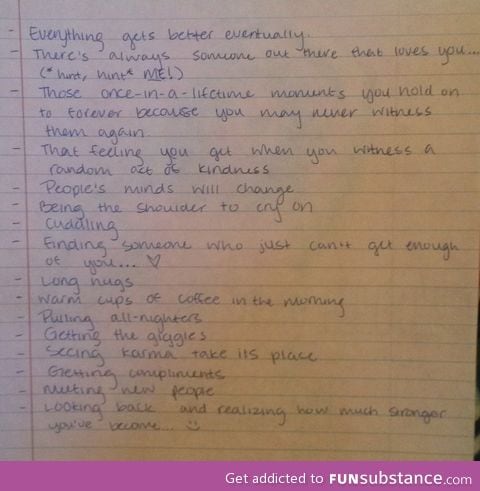 - Everything gets better eventually.
- There's always someone out there that loves you...
(*hint, hint* ME!)
- Those once-in-a-lifetime moments you hold on
to forever because you may never witness
them again
- That feeling you get when you witness a
random act of kindness
- People's minds will change
- Being the shoulder to cry on
- Cuddling
- Finding someone who just can't get enough
of you... ♡
- Long hugs
- Warm cups of coffee in the morning
- Pulling all-nighters
- Getting the giggles
- Seeing karma take its place
- Getting compliments
- Meeting new people
- Looking back and realizing how much stronger
you've become... :)
Get addicted to FUNsubstance.com